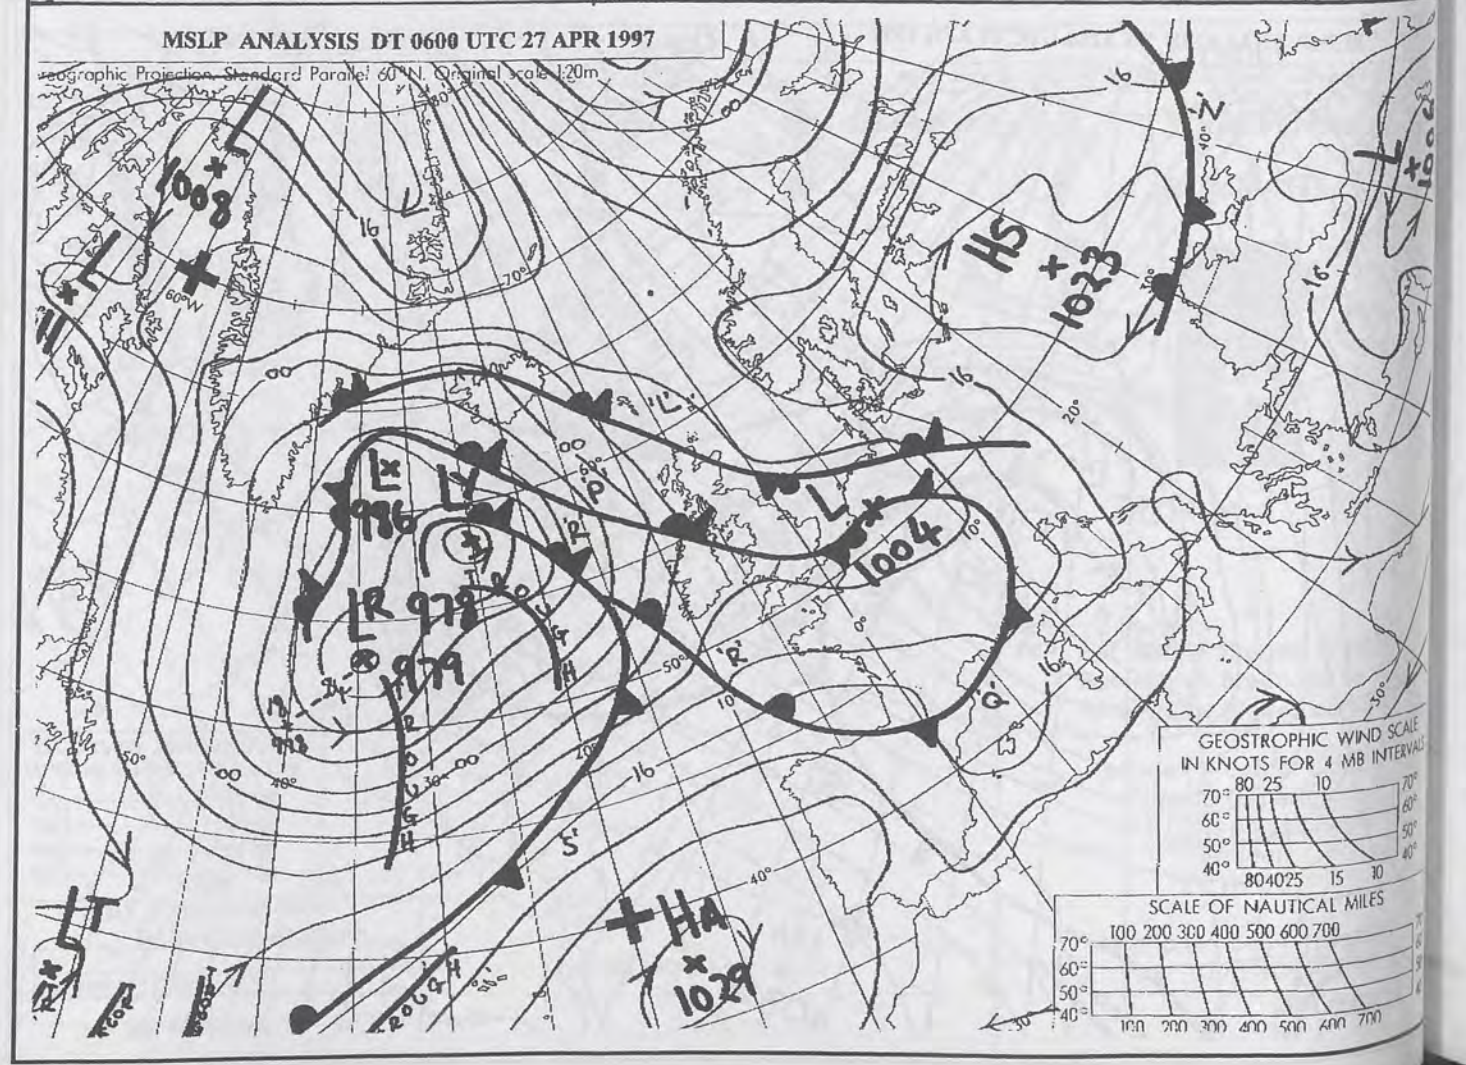 MSLP ANALYSIS DT 0600 UTC 27 APR 1997
eographic Projection, Standard Parallel 60°N. Original scale 1:20m
80°
L
1008
60°W
16
70°
00
16
'N'
40°
HS
1023
30°
L
16
16
20°
00
'L'
00
60°
'P'
LX
986
LY
'R'
L
1004
10°
0°
TROUGH
LR 978
L
979
50°
'R'
10°
16
'Q'
30°
998
50°
40°
00
30°
00
TROUGH
20°
16
'S'
40°
LT
HA
1029
TROUGH
30°
GEOSTROPHIC WIND SCALE
IN KNOTS FOR 4 MB INTERVALS
80 25 10
70° 70°
60° 60°
50° 50°
40° 40°
80 40 25 15 10
SCALE OF NAUTICAL MILES
100 200 300 400 500 600 700
70°
60°
50°
40°
100 200 300 400 500 600 700